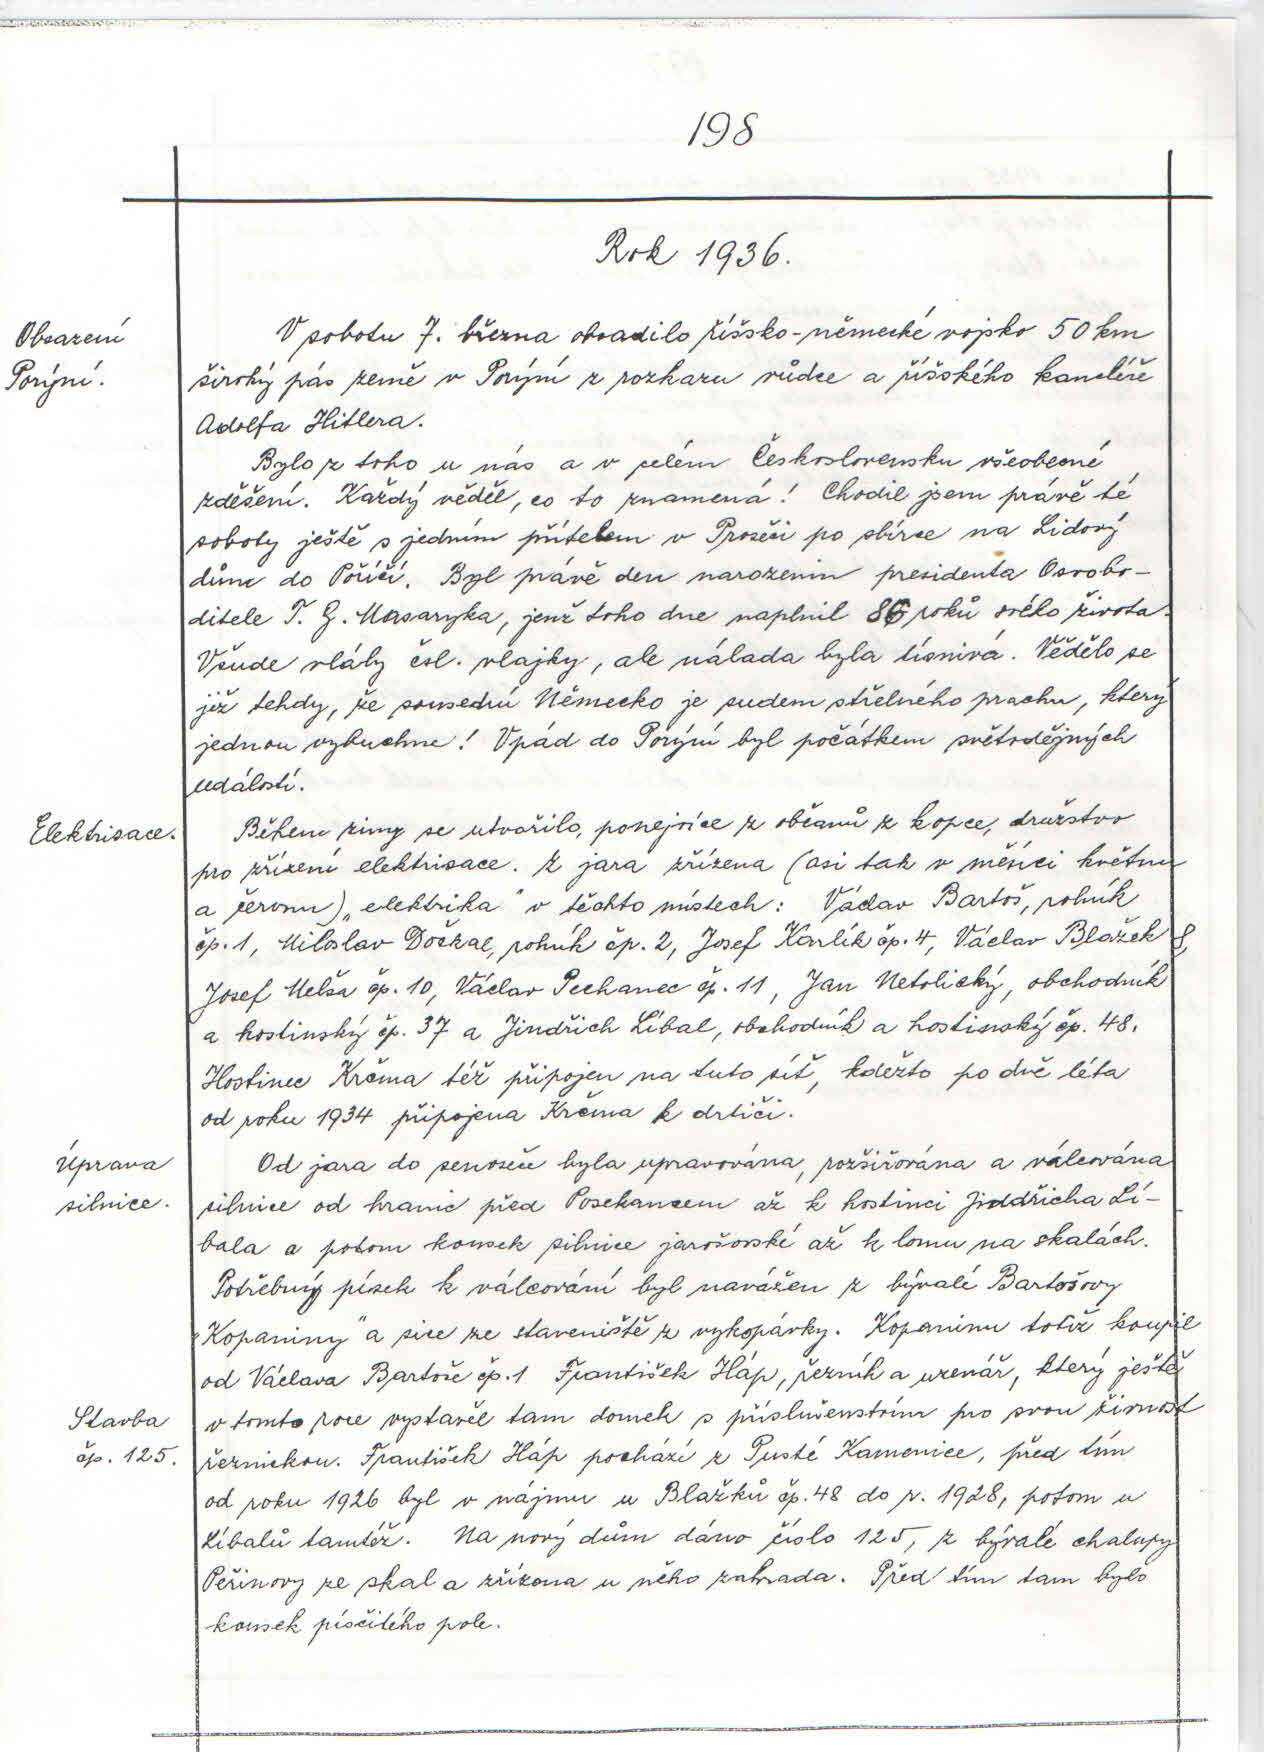 198
Rok 1936.
Obsazení
Porýní.
V sobotu 7. března obsadilo říšsko-německé vojsko 50 km
široký pás země v Porýní z rozkazu vůdce a říšského kancléře
Adolfa Hitlera.
Bylo z toho u nás a v celém Československu všeobecné
zděšení. Každý věděl, co to znamená! Chodil jsem právě té
soboty ještě s jedním přítelem v Proseči po sbírce na Lidový
dům do Poříčí. Byl právě den narozenin presidenta Osvobo-
ditele T. G. Masaryka, jenž toho dne naplnil 86 roků svého života.
Všude vlály čsl. vlajky, ale nálada byla tísnivá. Vědělo se
již tehdy, že sousední Německo je sudem střelného prachu, který
jednou vybuchne! Vpád do Porýní byl počátkem světodějných
událostí.
Elektrisace.
Během zimy se utvořilo, ponejvíce z občanů z kopce, družstvo
pro zřízení elektrisace. Z jara zřízena (asi tak v měsíci květnu
a červnu) „elektrika" v těchto místech: Václav Bartoš, rolník
čp. 1, Miloslav Dočkal, rolník čp. 2, Josef Karlík čp. 4, Václav Blažek 8,
Josef Melša čp. 10, Václav Pechanec čp. 11, Jan Netolický, obchodník
a hostinský čp. 37 a Jindřich Líbal, obchodník a hostinský čp. 48.
Hostinec Krčma též připojen na tuto síť, kdežto po dvě léta
od roku 1934 připojena Krčma k drtiči.
Úprava
silnice.
Od jara do senoseče byla upravována, rozšiřována a válcována
silnice od hranic před Posekancem až k hostinci Jindřicha Lí-
bala a potom kousek silnice jarošovské až k lomu na skalách.
Potřebný písek k válcování byl navážen z bývalé Bartošovy
„Kopaniny" a sice ze staveniště z vykopávky. Kopaninu totiž koupil
od Václava Bartoše čp. 1 František Háp, řezník a uzenář, který ještě
Stavba
čp. 125.
v tomto roce vystavěl tam domek s příslušenstvím pro svou živnost
řeznickou. František Háp pochází z Pusté Kamenice, před tím
od roku 1926 byl v nájmu u Blažků čp. 48 do r. 1928, potom u
Líbalů tamtéž. Na nový dům dáno číslo 125, z bývalé chalupy
Peřinovy ze skal a zřízena u něho zahrada. Před tím tam bylo
kousek písčitého pole.